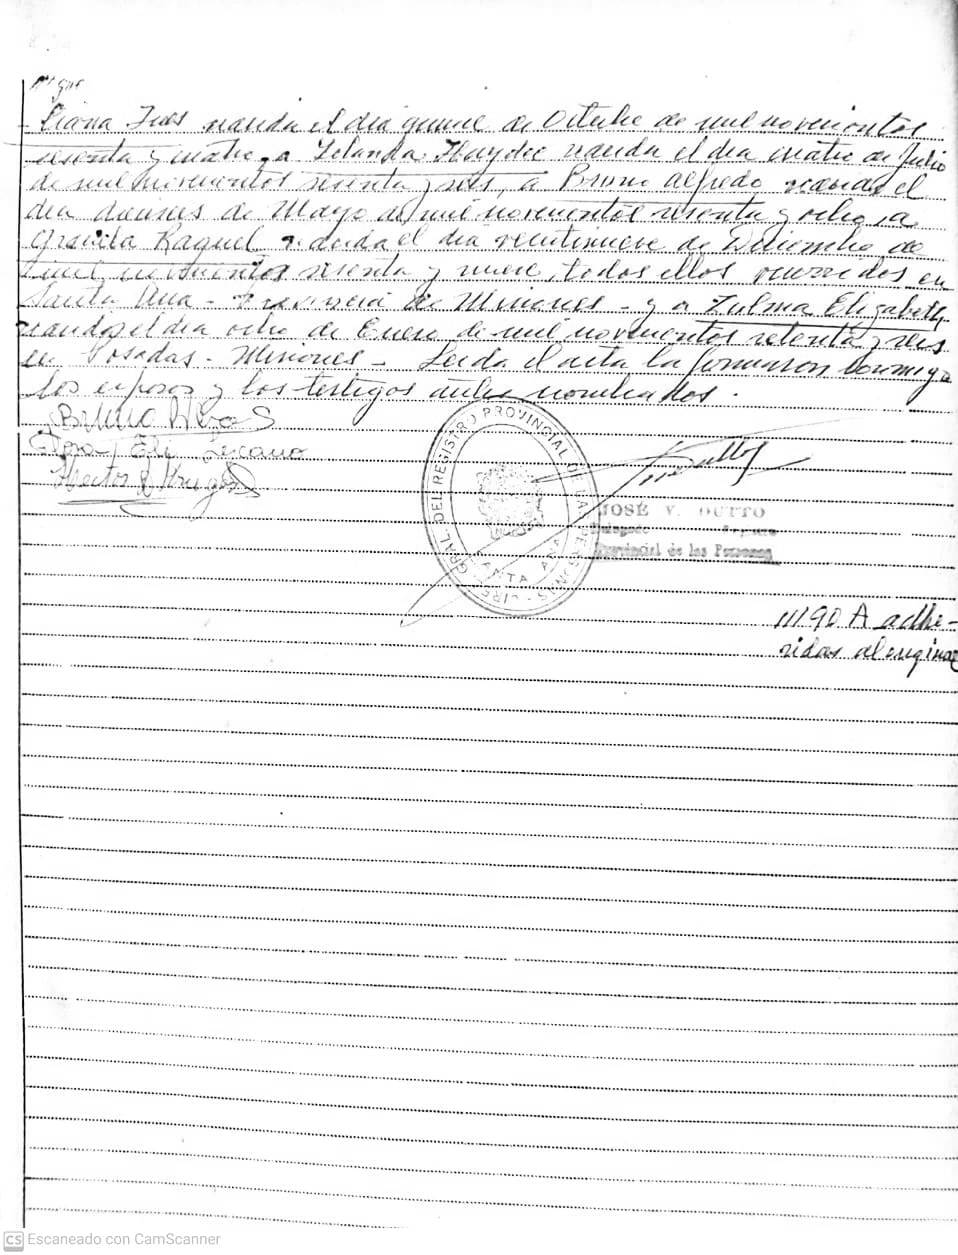 Diana Ines nacida el día quince de Octubre de mil novecientos
sesenta y cuatro, a Yolanda Haydee nacida el día cuatro de Julio
de mil novecientos sesenta y seis, a Bruno Alfredo nacido el
día dieciseis de Mayo de mil novecientos sesenta y ocho, a
Graciela Raquel nacida el día veintinueve de Diciembre de
mil novecientos sesenta y nueve, todos ellos en
Santa Ana - Provincia de Misiones - y a Zulma Elizabeth
nacida el día ocho de Enero de mil novecientos setenta y seis
en Posadas - Misiones - Leida el acta la firmaron conmigo
los esposos y los testigos antes nombrados.
Bruno
Lezcano
Hector
DIREC. GRAL. DEL REGISTRO PROVINCIAL DE LAS PERSONAS
SANTA ANA
JOSÉ V. DUTTO
Delegado
Provincial de las Personas
11190 A adhe-
ridas al original
CS Escaneado con CamScanner